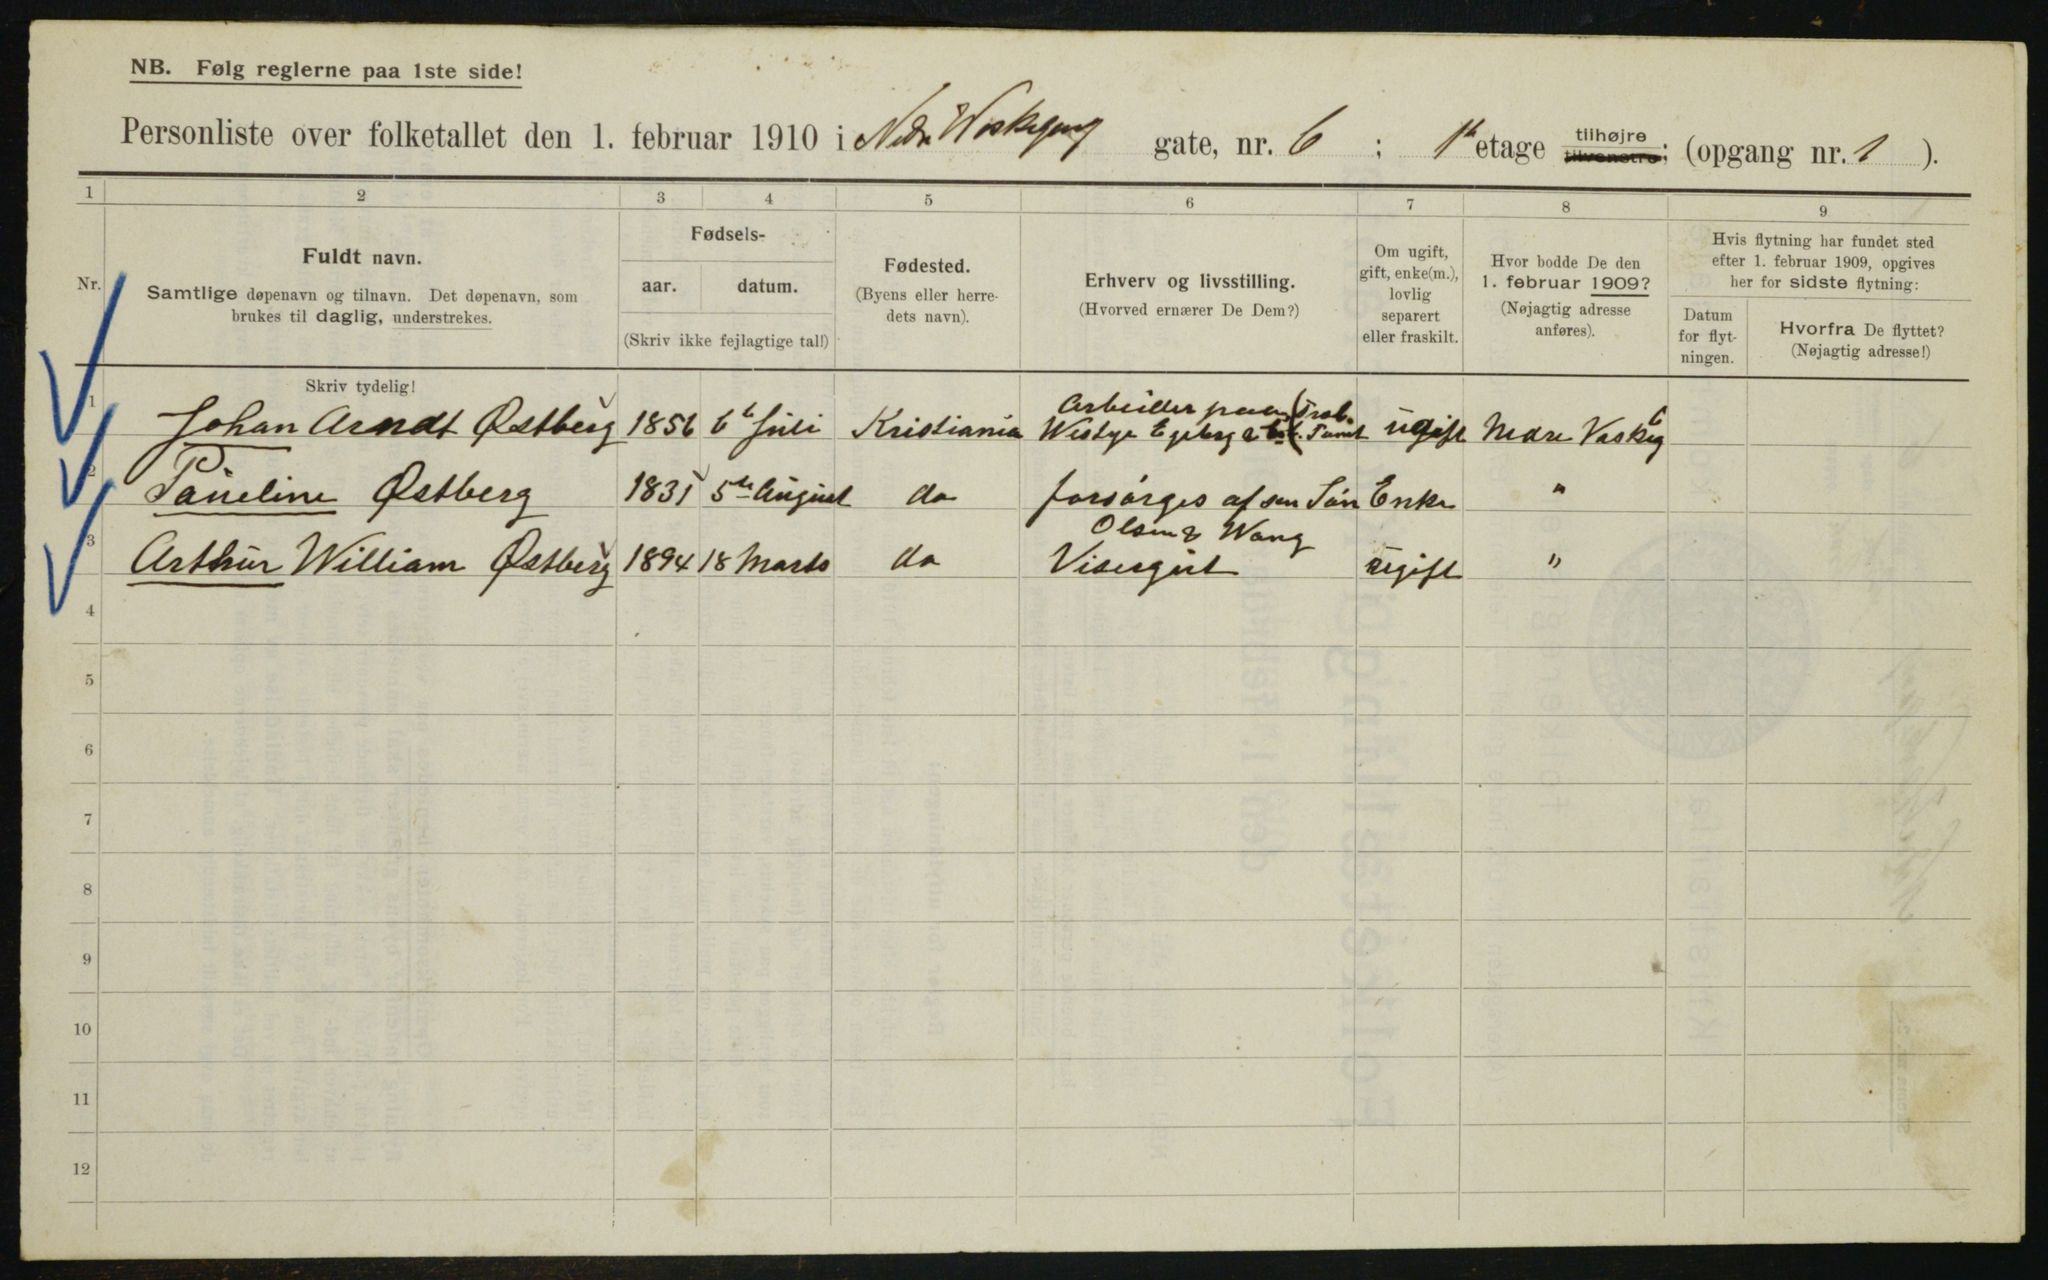 NB. Følg reglerne paa 1ste side!
Personliste over folketallet den 1. februar 1910 i Nedre Waskegang gate, nr. 6 ; 1st etage tilhøjre tilvenstre; (opgang nr. 1 ).
1 2 3 4 5 6 7 8 9
Nr.
Fuldt navn.
Samtlige døpenavn og tilnavn. Det døpenavn, som
brukes til daglig, understrekes.
Skriv tydelig!
Fødsels-
aar. datum.
(Skriv ikke fejlagtige tal!)
Fødested.
(Byens eller herre-
dets navn).
Erhverv og livsstilling.
(Hvorved ernærer De Dem?)
Om ugift,
gift, enke(m.),
lovlig
separert
eller fraskilt.
Hvor bodde De den
1. februar 1909?
(Nøjagtig adresse
anføres).
Hvis flytning har fundet sted
efter 1. februar 1909, opgives
her for sidste flytning:
Datum
for flyt-
ningen.
Hvorfra De flyttet?
(Nøjagtig adresse!)
Arbeider paa
1 Johan Arndt Østberg 1856 6t Juli Kristiania Westye Egeberg & Co. ugift Nedre Vaskeg 6
2 Pauline Østberg 1831 5te August do forsørges af sen Søn Enke "
Olsen & Wang
3 Arthur William Østberg 1894 18 Marts do Visergut ugift "
4
5
6
7
8
9
10
11
12